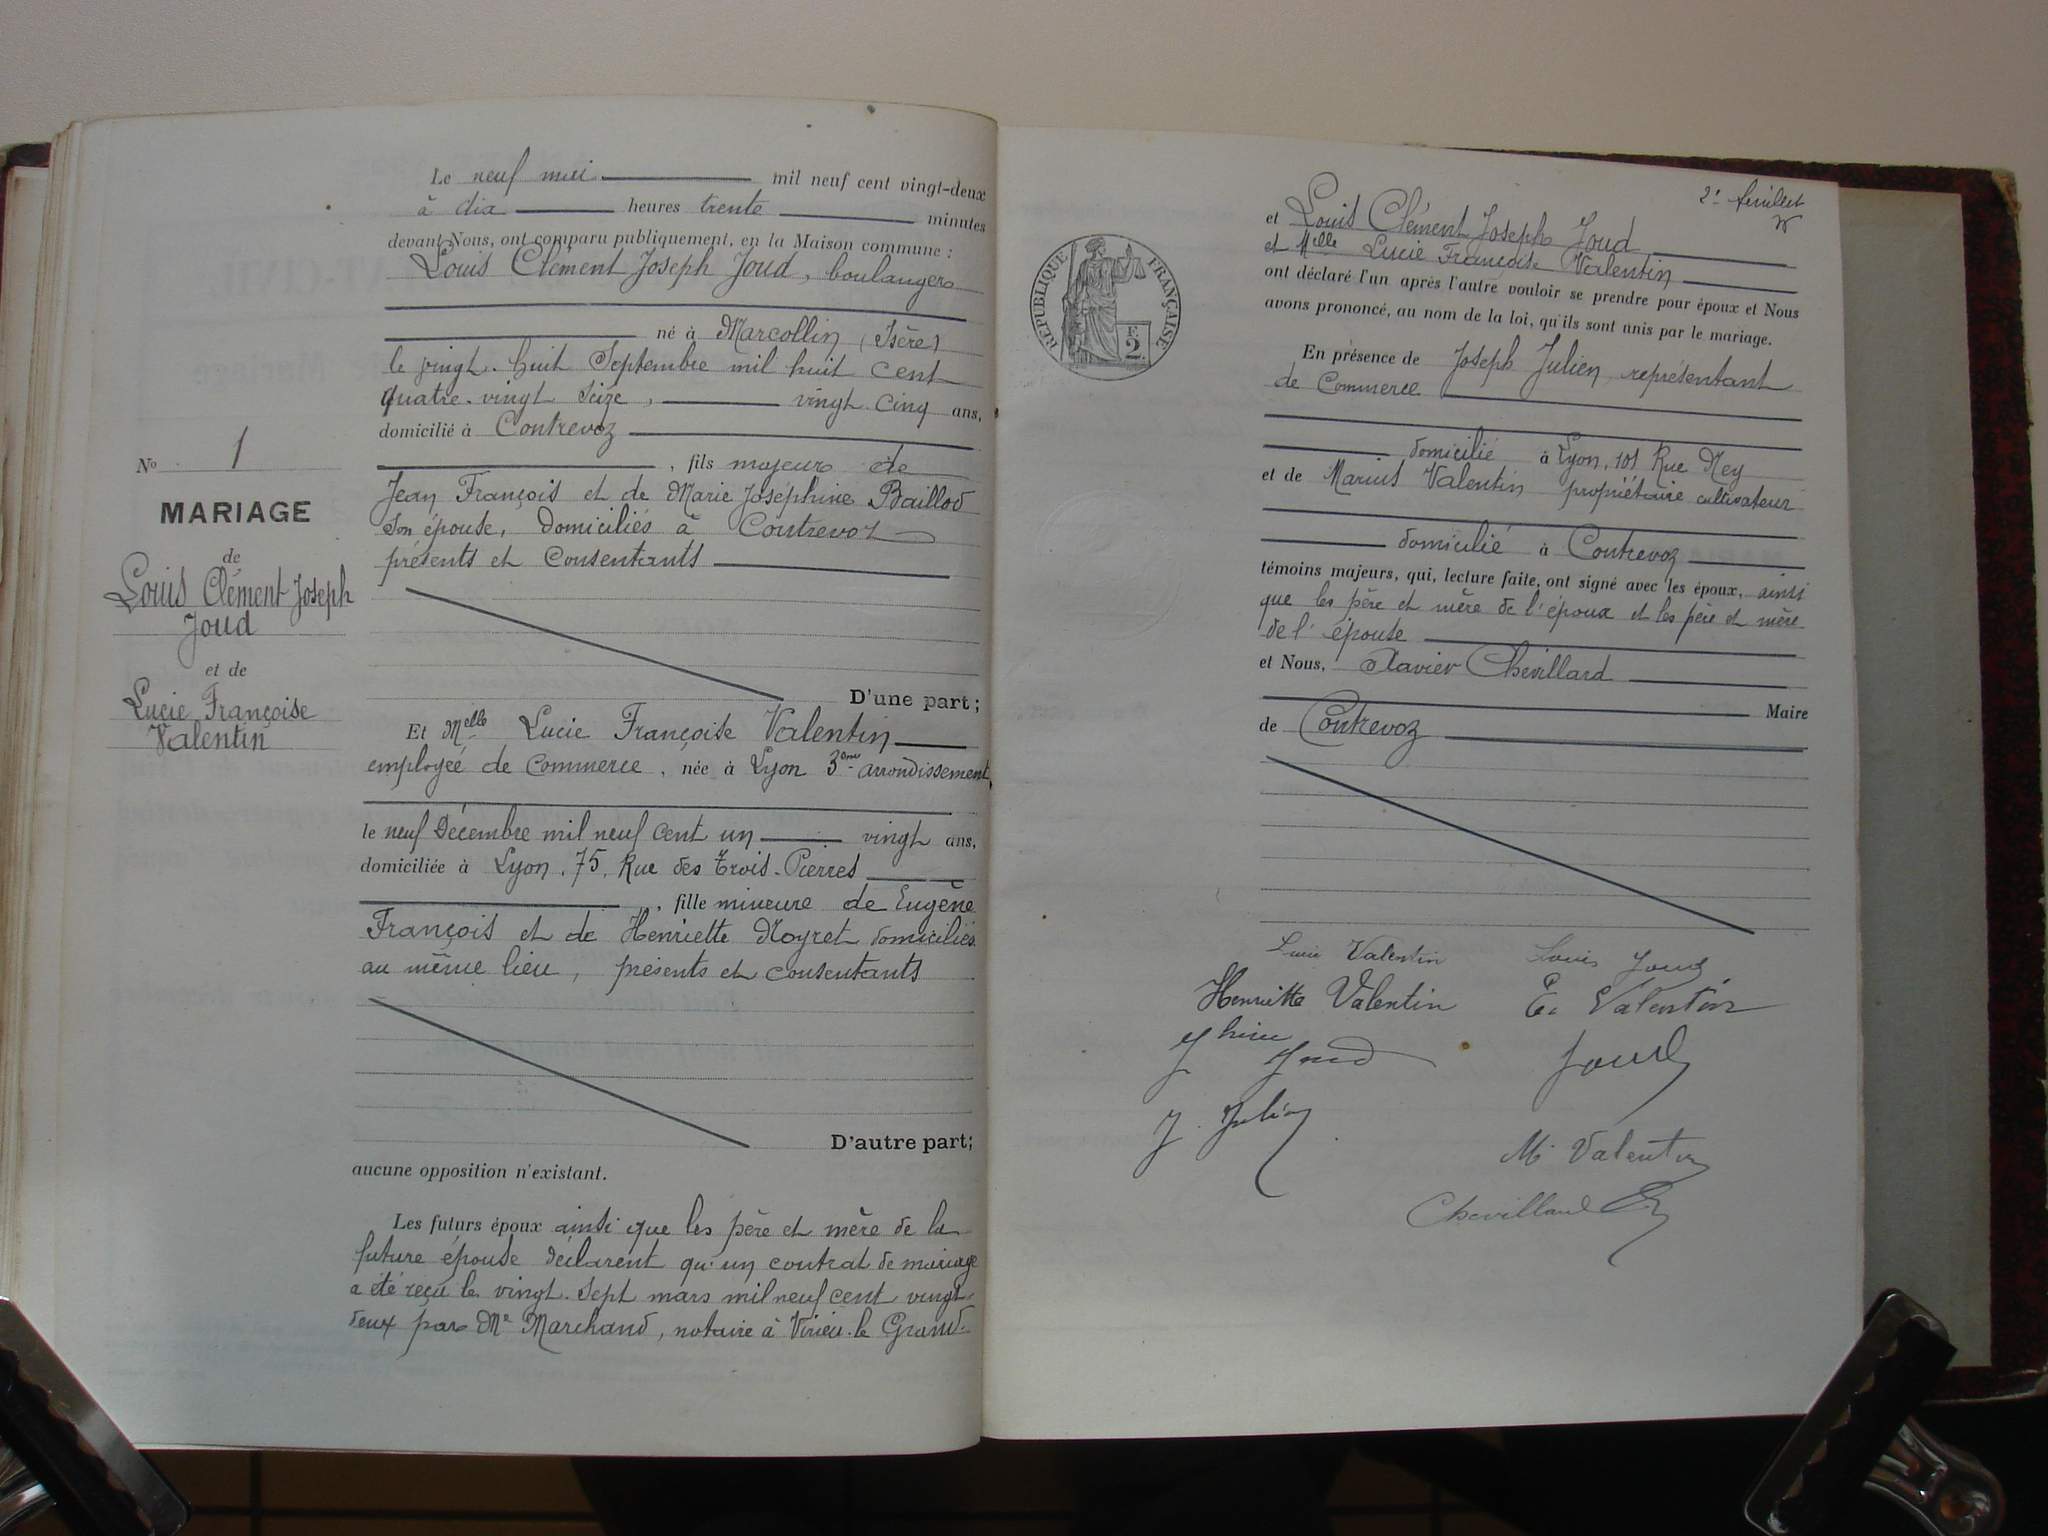 Le neuf mai mil neuf cent vingt-deux
à dix heures trente minutes
devant Nous, ont comparu publiquement, en la Maison commune :
Louis Clément Joseph Joud, boulanger
né à Marcollin (Isère)
le vingt-huit Septembre mil huit cent
quatre-vingt seize, vingt-cinq ans,
domicilié à Contrevoz
, fils majeur de
Jean François et de Marie Joséphine Baillod
son épouse, domiciliés à Contrevoz
présents et consentants
D'une part;
Et Melle Lucie Françoise Valentin
employée de commerce, née à Lyon 3eme arrondissement,
le neuf Décembre mil neuf cent un vingt ans,
domiciliée à Lyon, 75, Rue des Trois-Pierres
, fille mineure de Eugène
François et de Henriette Noyret domiciliés
au même lieu, présents et consentants
D'autre part;
aucune opposition n'existant.
Les futurs époux ainsi que les père et mère de la
future épouse déclarent qu'un contrat de mariage
a été reçu le vingt-sept mars mil neuf cent vingt-
deux par Me Marchand, notaire à Virieu-le Grand.
No 1
MARIAGE
de
Louis Clément Joseph
Joud
et de
Lucie Françoise
Valentin
2e feuillet
RÉPUBLIQUE FRANÇAISE
F.
2
et Louis Clément Joseph Joud
et Melle Lucie Françoise Valentin
ont déclaré l'un après l'autre vouloir se prendre pour époux et Nous
avons prononcé, au nom de la loi, qu'ils sont unis par le mariage.
En présence de Joseph Julien, représentant
de Commerce
domicilié à Lyon, 101 Rue Ney
et de Marius Valentin propriétaire cultivateur
domicilié à Contrevoz
témoins majeurs, qui, lecture faite, ont signé avec les époux, ainsi
que les père et mère de l'époux et les père et mère
de l'épouse
et Nous, Xavier Chevillard
Maire
de Contrevoz
Lucie Valentin Louis Joud
Henriette Valentin E. Valentin
Joud Joud
J. Julien
M. Valentin
Chevillard